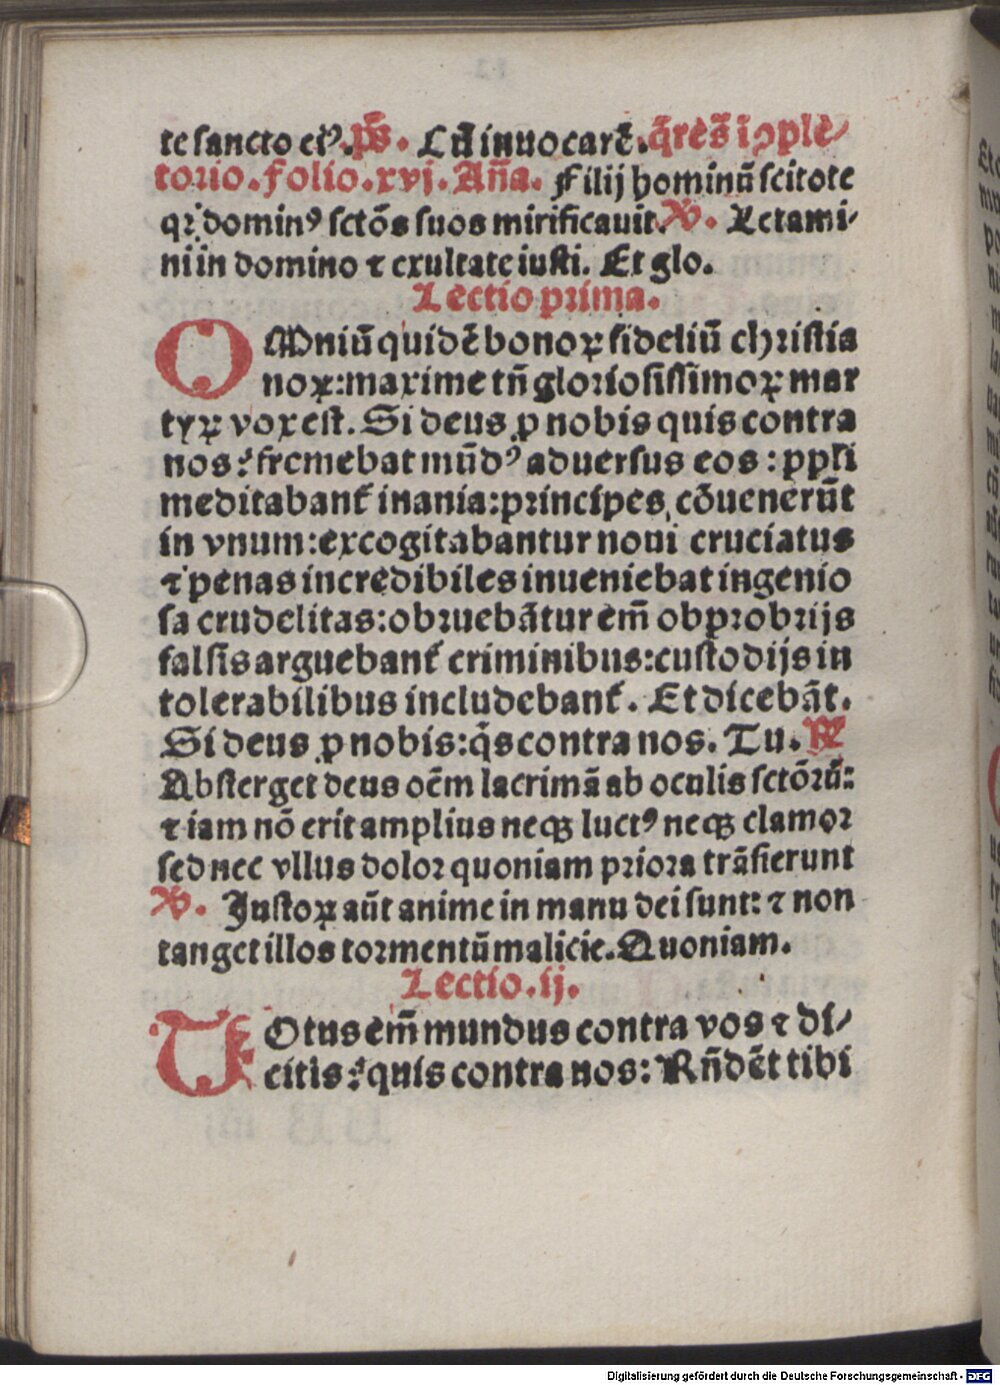 te sancto eiꝰ. p̄s. Cū inuocarē. q̄re s̄ i ↄplē/
torio. folio. xvj. Aña. Filij hominū scitote
qꝛ dominꝰ sctōs suos mirificauit. V̷. Letami/
ni in domino ⁊ exultate iusti. Et glo.
Lectio prima.
OMniū quidē bonoꝝ fideliū christia
noꝝ: maxime tñ gloriosissimoꝝ mar
tyꝝ vox est. Si deus ꝓ nobis quis contra
nos? fremebat mūdꝰ aduersus eos: ppłi
meditabant̄ inania: principes cōuenerūt
in vnum: excogitabantur noui cruciatus
⁊ penas incredibiles inueniebat ingenio
sa crudelitas: obruebātur em̄ obprobrijs
falsis arguebant̄ criminibus: custodijs in
tolerabilibus includebant̄. Et dicebāt.
Si deus ꝓ nobis: q̄s contra nos. Tu. ℞
Absterget deus oēm lacrimā ab oculis sctōꝛū:
⁊ iam nō erit amplius neqꝫ luctꝰ neqꝫ clamor
sed nec vllus dolor quoniam priora trāsierunt
V̷. Justoꝝ aūt anime in manu dei sunt: ⁊ non
tanget illos tormentū malicie. Quoniam.
Lectio. ij.
TOtus em̄ mundus contra vos ⁊ di/
citis? quis contra nos: Rñdēt tibi
Digitalisierung gefördert durch die Deutsche Forschungsgemeinschaft - DFG